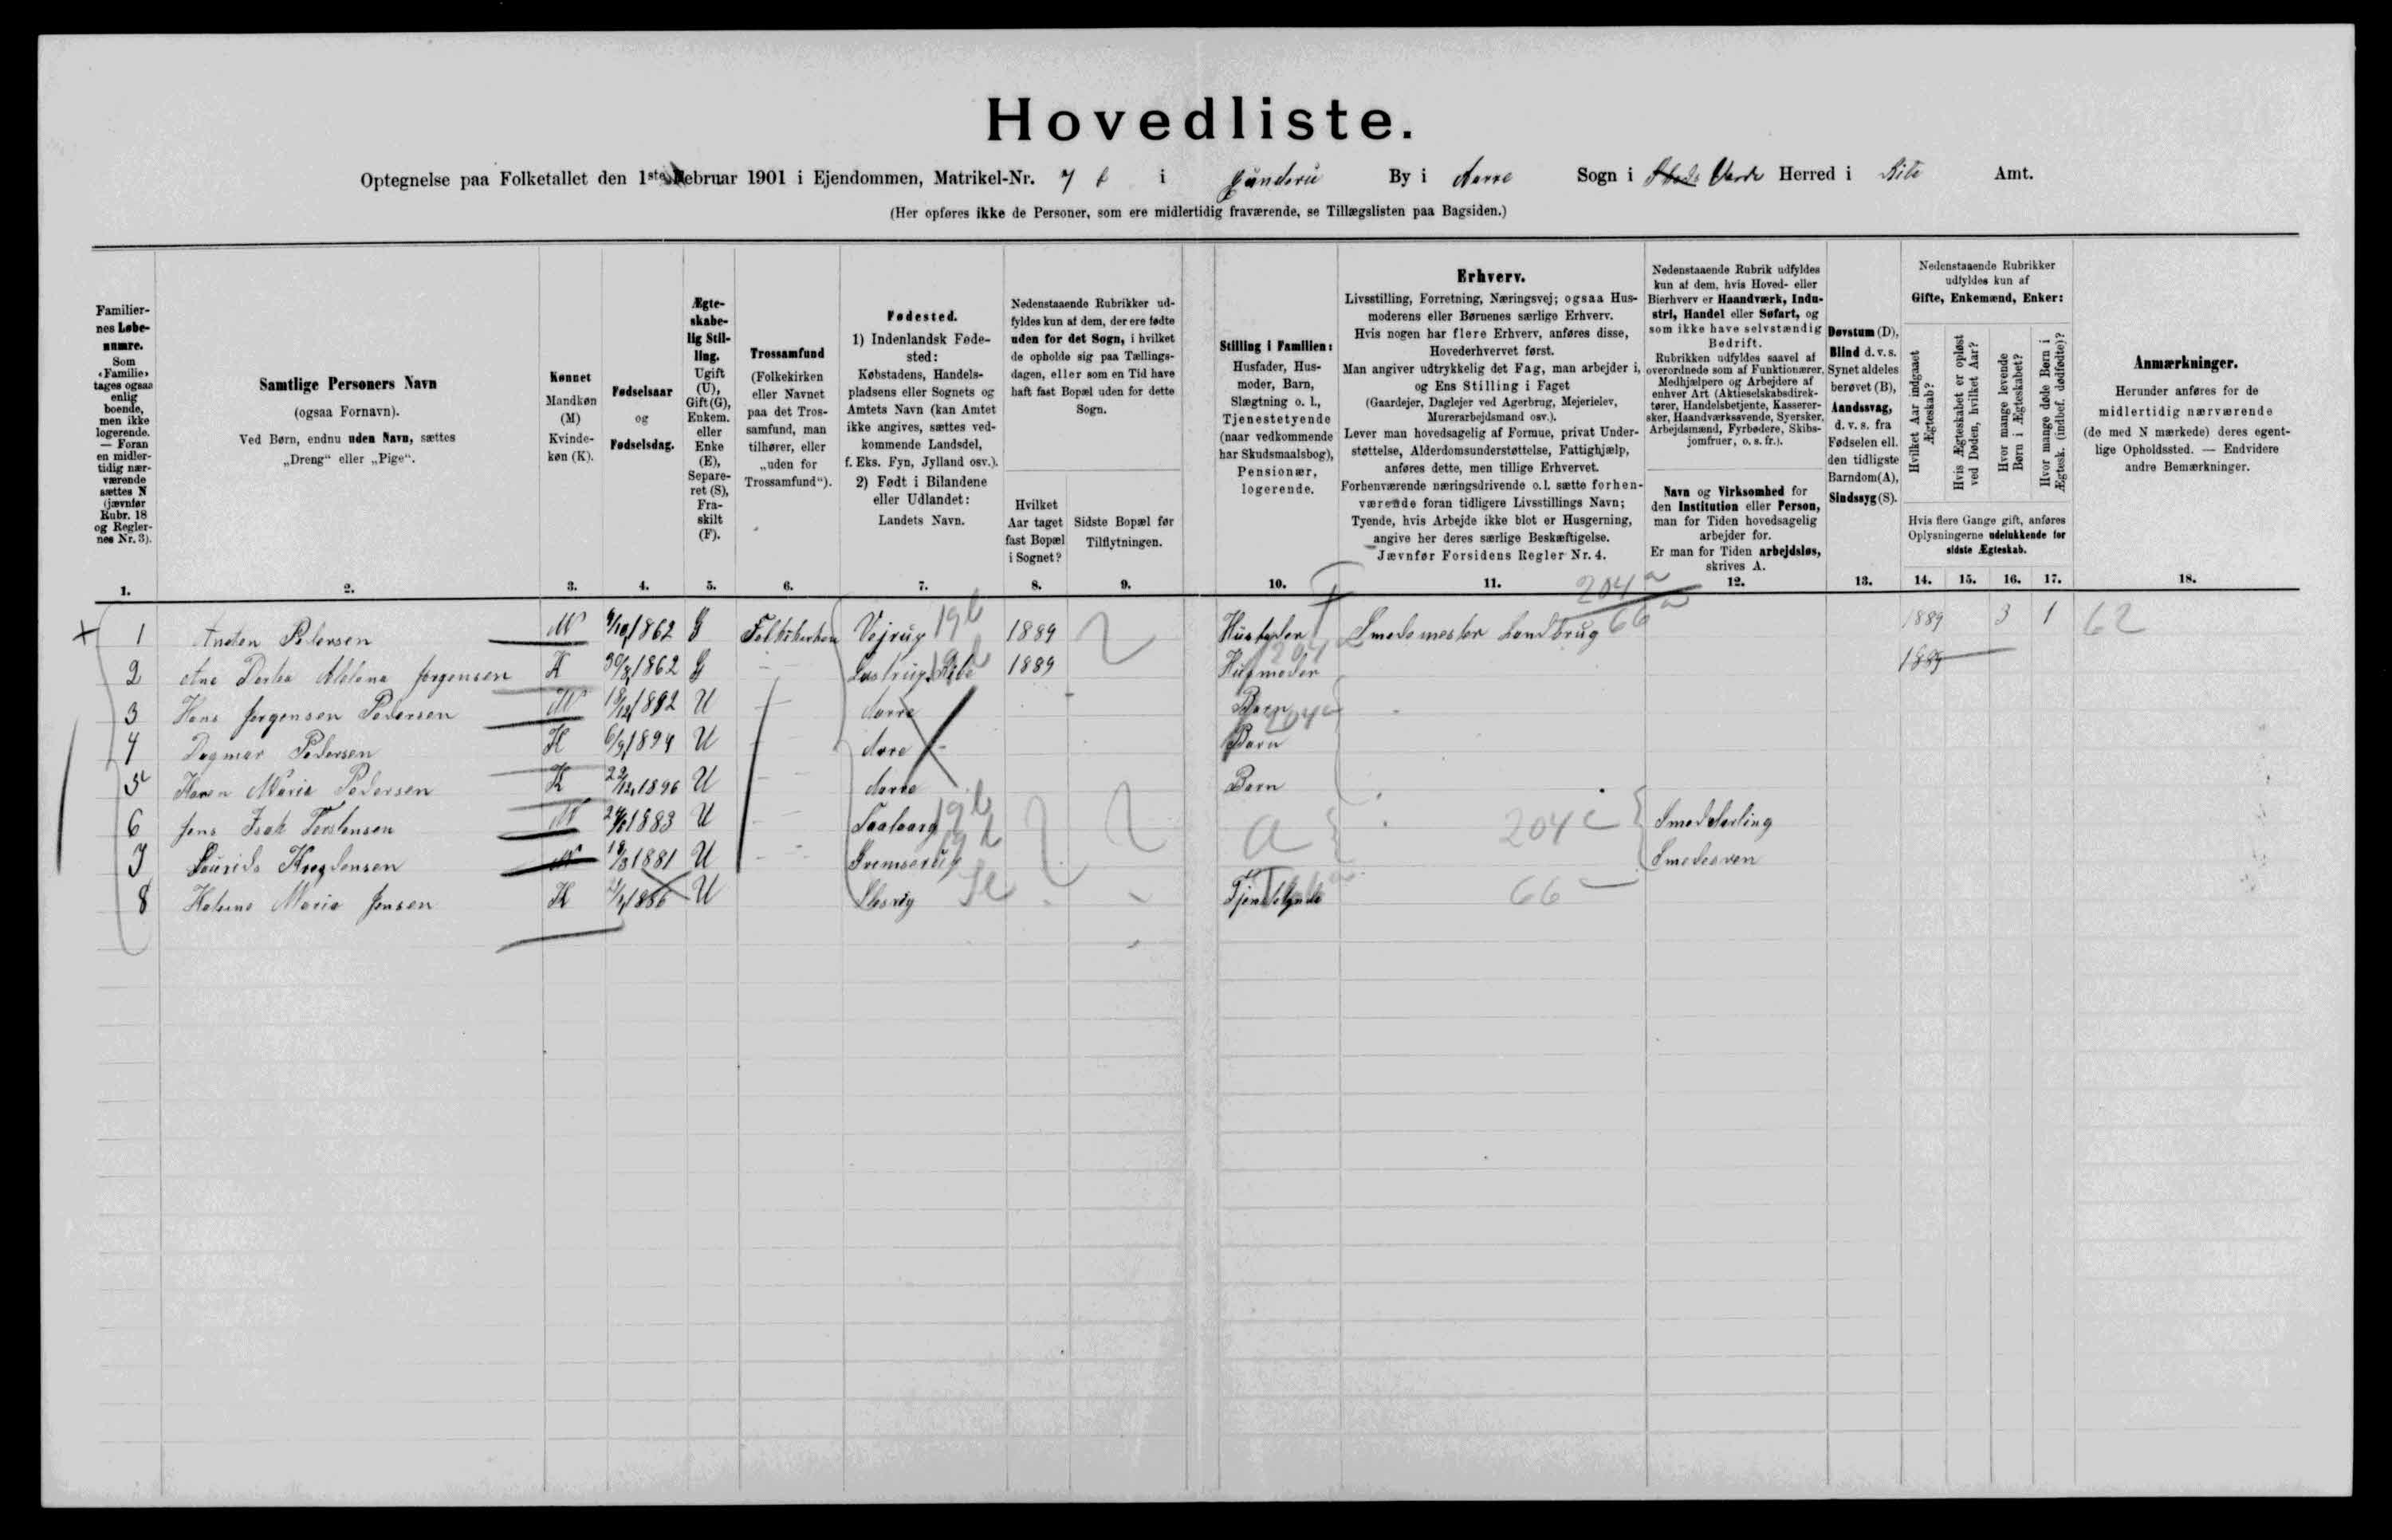 Hovedliste.
Optegnelse paa Folketallet den 1ste Februar 1901 i Ejendommen, Matrikel-Nr. 7 i By i Aarre Sogn i Varde Herred i Ribe Amt.
(Her opføres ikke de Personer, som ere midlertidig fraværende, se Tillægslisten paa Bagsiden.)
Familiernes Løbenumre.
Som «Familie» tages ogsaa enlig boende, men ikke logerende. — Foran en midlertidig nærværende sættes N (jævnfør Rubr. 18 og Reglernes Nr. 3).
Samtlige Personers Navn
(ogsaa Fornavn).
Ved Børn, endnu uden Navn, sættes
„Dreng“ eller „Pige“.
Kønnet
Mandkøn (M)
Kvindekøn (K).
Fødselsaar
og
Fødselsdag.
Ægteskabelig Stilling.
Ugift (U), Gift (G), Enkem. eller Enke (E), Separeret (S), Fraskilt (F).
Trossamfund
(Folkekirken eller Navnet paa det Trossamfund, man tilhører, eller „uden for Trossamfund“).
Fødested.
1) Indenlandsk Fødested:
Købstadens, Handelspladsens eller Sognets og Amtets Navn (kan Amtet ikke angives, sættes vedkommende Landsdel, f. Eks. Fyn, Jylland osv.).
2) Født i Bilandene eller Udlandet:
Landets Navn.
Nedenstaaende Rubrikker udfyldes kun af dem, der ere fødte uden for det Sogn, i hvilket de opholde sig paa Tællingsdagen, eller som en Tid have haft fast Bopæl uden for dette Sogn.
Hvilket Aar taget fast Bopæl i Sognet?
Sidste Bopæl før Tilflytningen.
Stilling i Familien:
Husfader, Husmoder, Barn, Slægtning o. l., Tjenestetyende (naar vedkommende har Skudsmaalsbog), Pensionær, logerende.
Erhverv.
Livsstilling, Forretning, Næringsvej; ogsaa Husmoderens eller Børnenes særlige Erhverv.
Hvis nogen har flere Erhverv, anføres disse, Hovederhvervet først.
Man angiver udtrykkelig det Fag, man arbejder i, og Ens Stilling i Faget
(Gaardejer, Daglejer ved Agerbrug, Mejerielev, Murerarbejdsmand osv.).
Lever man hovedsagelig af Formue, privat Understøttelse, Alderdomsunderstøttelse, Fattighjælp, anføres dette, men tillige Erhvervet.
Forhenværende næringsdrivende o.l. sætte forhenværende foran tidligere Livsstillings Navn;
Tyende, hvis Arbejde ikke blot er Husgerning, angive her deres særlige Beskæftigelse.
Jævnfør Forsidens Regler Nr. 4.
Nedenstaaende Rubrik udfyldes kun af dem, hvis Hoved- eller Bierhverv er Haandværk, Industri, Handel eller Søfart, og som ikke have selvstændig Bedrift.
Rubrikken udfyldes saavel af overordnede som af Funktionærer, Medhjælpere og Arbejdere af enhver Art (Aktieselskabsdirektører, Handelsbetjente, Kasserersker, Haandværkssvende, Syersker, Arbejdsmænd, Fyrbødere, Skibsjomfruer, o. s. fr.).
Navn og Virksomhed for den Institution eller Person, man for Tiden hovedsagelig arbejder for.
Er man for Tiden arbejdsløs, skrives A.
Døvstum (D), Blind d. v. s. Synet aldeles berøvet (B), Aandssvag, d. v. s. fra Fødselen ell. den tidligste Barndom (A), Sindssyg (S).
Nedenstaaende Rubrikker udfyldes kun af
Gifte, Enkemænd, Enker:
Hvilket Aar indgaaet Ægteskab?
Hvis Ægteskabet er opløst ved Døden, hvilket Aar?
Hvor mange levende Børn i Ægteskabet?
Hvor mange døde Børn i Ægtesk. (indbef. dødfødte)?
Hvis flere Gange gift, anføres Oplysningerne udelukkende for sidste Ægteskab.
Anmærkninger.
Herunder anføres for de midlertidig nærværende (de med N mærkede) deres egentlige Opholdssted. — Endvidere andre Bemærkninger.
1. 2. 3. 4. 5. 6. 7. 8. 9. 10. 11. 12. 13. 14. 15. 16. 17. 18.
204 a
1 Pedersen M 1862 G Folkekirken Vejrup 19b 1889 Husfader Smedemester Landbrug 66 a 1889 3 1 62
2 Ane Jørgensen K 1862 G Ribe 1889 Husmoder 1889
3 Hans Jørgensen Pedersen M U Aarre Barn
4 Dagmar Pedersen K 6/9 1894 U Aarre Barn
5 Karen Marie Pedersen K 1896 U Aarre Barn
6 Jens M 1883 U 19b a 204 c Smedelærling
7 Laurids M 1881 U Smedesven
8 Marie Jensen K 1886 U Slesvig Tjenestetyende 66